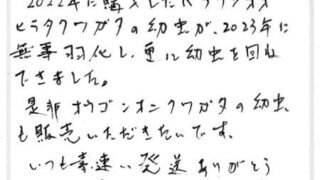 2022年に購入したパラワンオオ
ヒラタクワガタの幼虫が、2023年に
無事羽化し、更に幼虫を回収
できました。
是非オウゴンオニクワガタの幼虫
も販売いただきたいです。
いつも素速い発送ありがとう